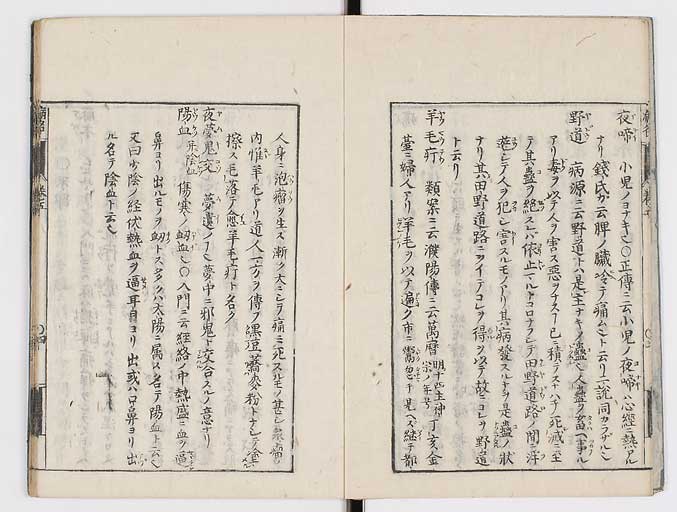 夜啼 小児ノヨナキ也〇正傳ニ云小児ノ夜啼ハ心經ニ熱アル
ナリ錢氏カ云脾ノ臟冷テ痛ムト云リ二説同カラザル也
野道 病源ニ云野道トハ是主ナキノ蠱也人蠱ヲ畜テ事ル
アリ毒ヲ以テ人ヲ害ス惡ヲナスヿ已ニ積テスナハチ死滅ニ至
テ其蠱ヲ絶スレバ依止スルトコロナクシテ田野道路ノ間ヲ浮
遊シテ人ヲ犯シ害スルモノアリ其病發スルトキ是蠱ノ狀
ナリ其田野道路ニヲイテコレヲ得ルヲ以テ故ニコレヲ野道
ト云リ
羊毛疔 類案ニ云濮陽傳ニ云萬曆 明ノ四主神宗ノ年号 丁亥金
臺ニ婦人アリ羊毛ヲ以テ遍ク市ニ鬻
人身ニ疱瘤ヲ生ズ漸ク大ニシテ痛ニ死スルモノ甚シ
内惟羊毛アリ道人一方ヲ傳フ 蕎麥粉トナシテ塗
擦ス毛落テ愈羊毛疔ト名ク
夜夢鬼交 夢遺ノヿ也夢中ニ邪鬼ト交合スルノ意ナリ
陽血 陰血 傷寒ノ衂血也〇入門ニ云經絡ノ中熱盛ニ血ヲ逼
鼻ヨリ出ルモノヲ衂トス多クハ太陽ニ屬ス名テ陽血ト云也
又曰少陰ノ經伏熱血ヲ逼耳目ヨリ出或ハ口鼻ヨリ出
ル名テ陰血ト云也